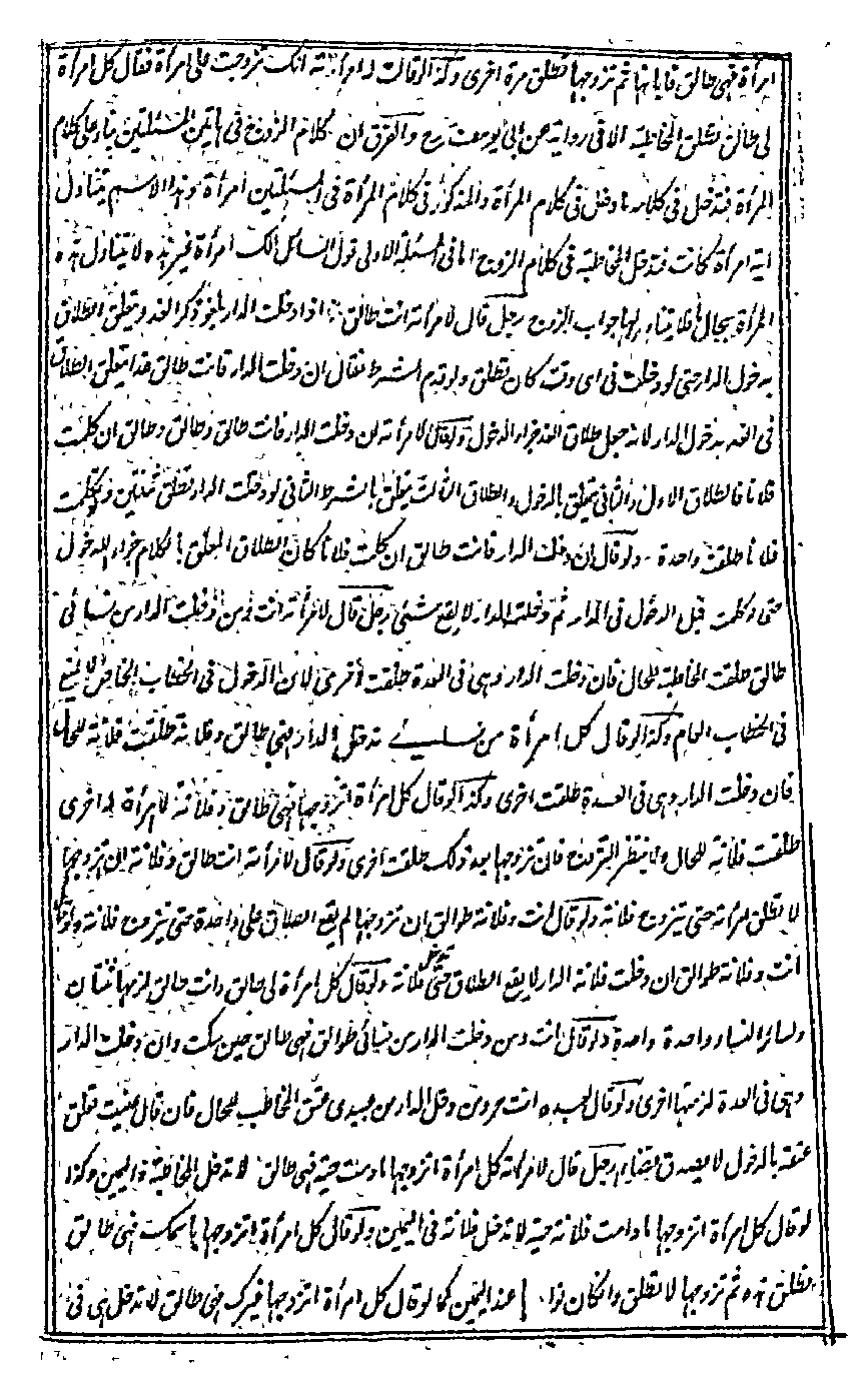 امرأة فهى طالق فابانها ثم تزوجها تطلق مرة اخرى وكذا لو قالت له امرأته انك تزوجت على امرأة فقال كل امرأة
لى طالق تطلق المخاطبة الا فى رواية عن ابى يوسف رح والفرق ان كلام الزوج فى هاتين المسئلتين بناء على كلام
المرأة فتدخل فى كلامه ما دخل فى كلام المرأة والمذكور فى كلام المرأة فى المسئلتين امرأة وهذا الاسم يتناول
اية امرأة كانت فتدخل المخاطبة فى كلام الزوج اما فى المسئلة الاولى قول السائل الك امرأة غير هذه لا يتناول هذه
المرأة بحال فلا يتناولها جواب الزوج رجل قال لامرأته انت طالق اذا دخلت الدار يلغو ذكر الغد ويتعلق الطلاق
بدخول الدار حتى لو دخلت فى اى وقت كان تطلق ولو قدم الشرط فقال ان دخلت الدار فانت طالق غدا يتعلق الطلاق
فى الغد بدخول الدار لانه جعل طلاق الغد جزاء الدخول ولو قال لامرأته ان دخلت الدار فانت طالق وطالق وطالق ان كلمت
فلانا فالطلاق الاول والثانى يتعلق بالدخول والطلاق الثالث يتعلق بالشرط الثانى لو دخلت الدار تطلق ثنتين ولو كلمت
فلانا طلقت واحدة ولو قال ان دخلت الدار فانت طالق ان كلمت فلانا كان الطلاق المعلق بالكلام جزاء الدخول
حتى لو كلمت قبل الدخول فى الدار ثم دخلت الدار لا يقع شئ رجل قال لامرأته انت ومن دخلت الدار من نسائى
طالق طلقت المخاطبة للحال فان دخلت الدار وهى فى العدة طلقت اخرى لان الدخول فى الخطاب الخاص لا يمنع
فى الخطاب العام وكذا لو قال كل امرأة من نسائى تدخل الدار فهى طالق وفلانة طلقت فلانة للحال
فان دخلت الدار وهى فى العدة طلقت اخرى وكذا لو قال كل امرأة اتزوجها فهى طالق وفلانة لامرأة له اخرى
طلقت فلانة للحال ولا ينتظر التزوج فان تزوجها بعد ذلك طلقت اخرى ولو قال لامرأته انت طالق وفلانة ان تزوجها
لا تطلق امرأته حتى يتزوج فلانة ولو قال انت وفلانة طوالق ان تزوجها لم يقع الطلاق على واحدة حتى يتزوج فلانة ولو قال
انت وفلانة طوالق ان دخلت فلانة الدار لا يقع الطلاق حتى تدخل فلانة ولو قال كل امرأة لى طالق وانت طالق لزمها ثنتان
ولسائر النساء واحدة واحدة ولو قال انت ومن دخلت الدار من نسائى طوالق فهى طالق حين سكت وان دخلت الدار
وهى فى العدة لزمتها اخرى ولو قال لعبده انت حر ومن دخل الدار من عبيدى عتق المخاطب للحال فان قال عنيت تعلق
عتقه بالدخول لا يصدق قضاء رجل قال لامرأته كل امرأة اتزوجها ما دمت حية فهى طالق لا تدخل المخاطبة فى اليمين وكذا
لو قال كل امرأة اتزوجها ما دامت فلانة حية لا تدخل فلانة فى اليمين ولو قال كل امرأة اتزوجها باسمك فهى طالق
فطلق هذه ثم تزوجها لا تطلق وان كان نواها عند اليمين كما لو قال كل امرأة اتزوجها غيرك فهى طالق لا تدخل هى فى